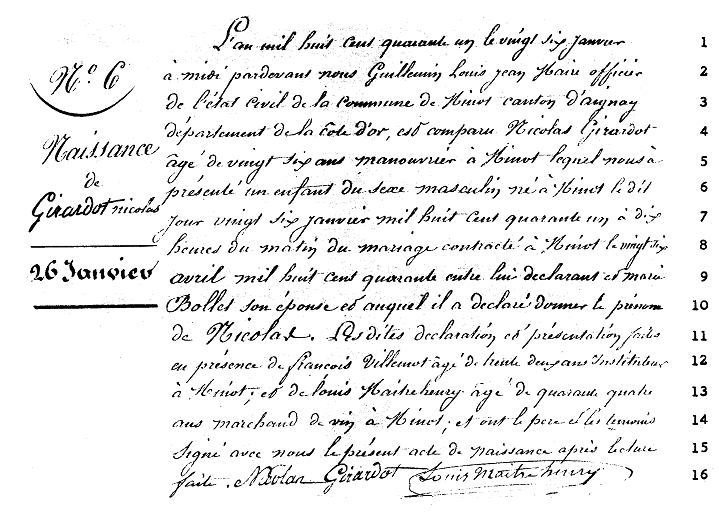 L'an mil huit cent quarante un le vingt six janvier 1
N° 6
à midi pardevant nous Guillemin Louis Jean Maire officier 2
de l'état civil de la commune de Minot canton d'aignay 3
département de la Côte d'or, est comparu Nicolas Girardot 4
Naissance
âgé de vingt six ans manouvrier à Minot lequel nous à 5
de
présenté un enfant du sexe masculin né à Minot le dit 6
Girardot nicolas
jour vingt six janvier mil huit cent quarante un à dix 7
heures du matin du mariage contracté à Minot le vingt six 8
26 Janvier
avril mil huit cent quarante entre lui déclarant et marie 9
Bollet son épouse et auquel il a déclaré donner le prénom 10
de Nicolas. Les dites déclaration et présentation faites 11
en présence de françois Villemot âgé de trente deux ans Instituteur 12
à Minot, et de Louis Maitrehenry âgé de quarante quatre 13
ans marchand de vin à Minot; et ont le pere et les temoins 14
signé avec nous le présent acte de naissance après lecture 15
faite. Nicolas Girardot Louis Maitre henry 16